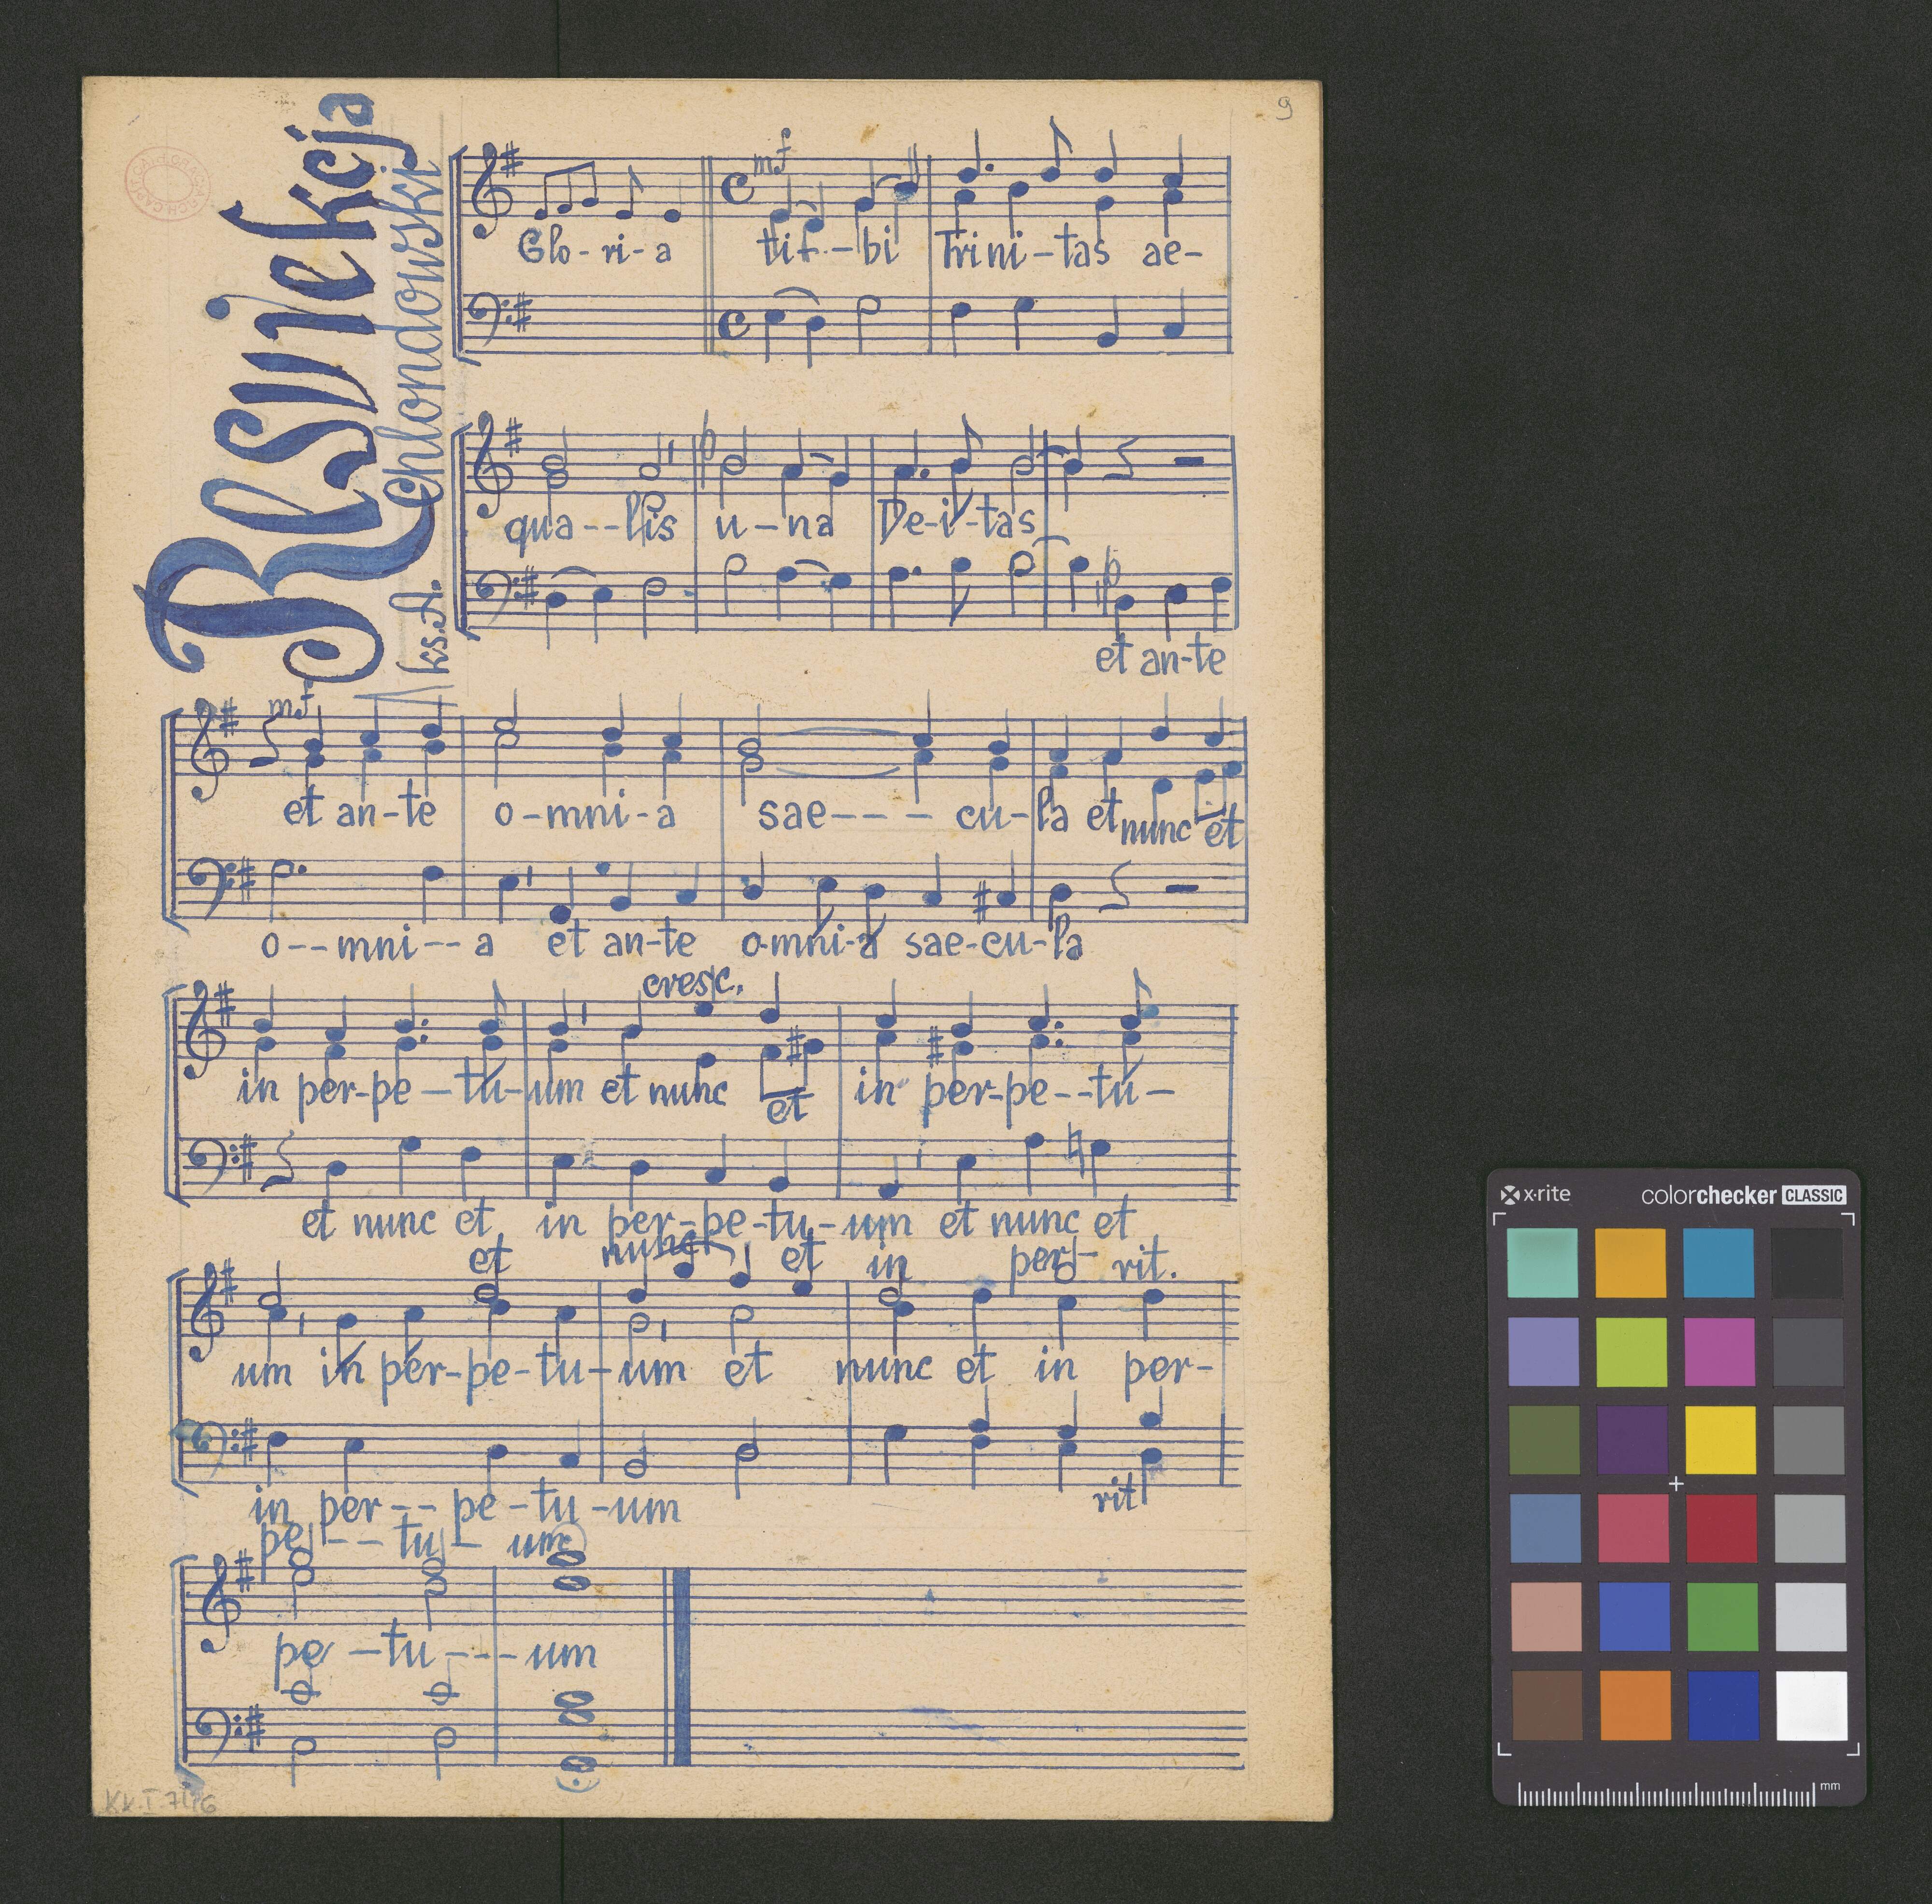 9
Resurekcja
ks. A. Chlondowski
mf
Glo-ri-a ti--bi Trini-tas ae-
p
qua--lis u-na De-i-tas
p
et an-te
mf
et an-te o-mni-a sae--- cu-la et nunc et
o--mni--a et an-te o-mni-a sae-cu-la
cresc.
in per-pe-tu-um et nunc et in per-pe--tu-
et nunc et in per-pe-tu-um et nunc et
et nunc et in per- rit.
um in per-pe-tu-um et nunc et in per-
in per-- pe-tu-um rit
pe---tu- um
pe-tu---um
KK.I 7/16
x·rite colorchecker CLASSIC
mm